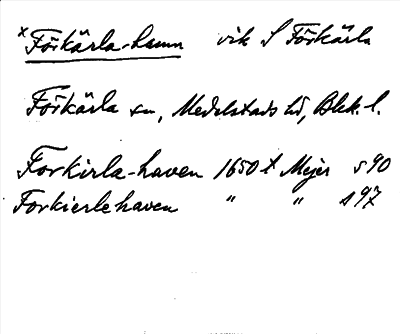 x Förkärla-hamn vik S Förkärla
Förkärla sn, Medelstads hd, Blek. l.
Forkirla-haven 1650 t Mejer s 90
Forkierlehaven " " s 97